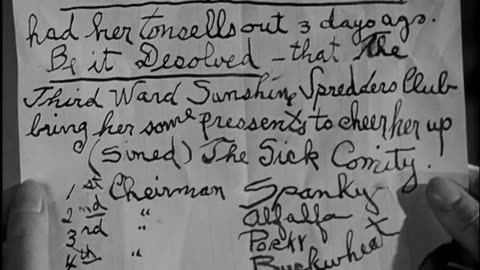 had her tonsells out 3 days ago.
Be it Desolved - that The
Third Ward Sunshine Spredders Club
bring her some pressents to cheer her up
(Sined) The Sick Comity.
1st Cheirman Spanky
2nd " Alfalfa
3rd " Porky
4th " Buckwheat